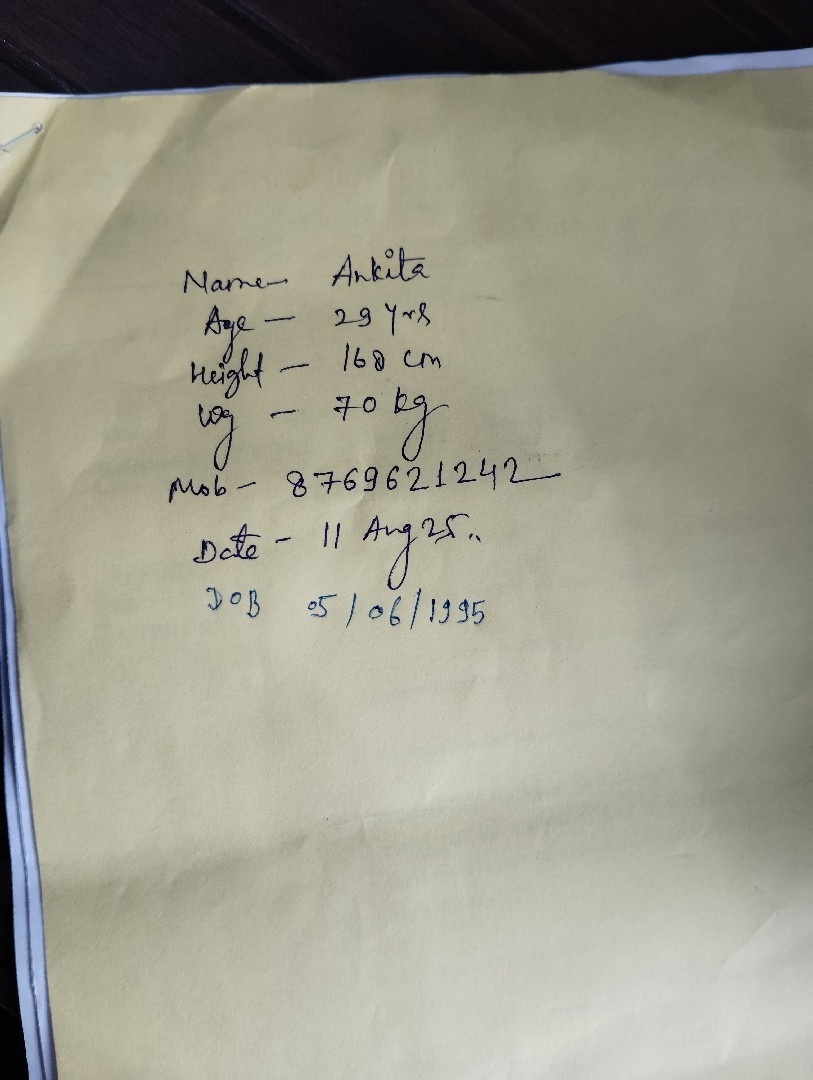 Name- Ankita
Age - 29 yrs
Height - 168 cm
Wg - 70 kg
Mob - 8769621242
Date - 11 Aug 25..
DOB 05/06/1995